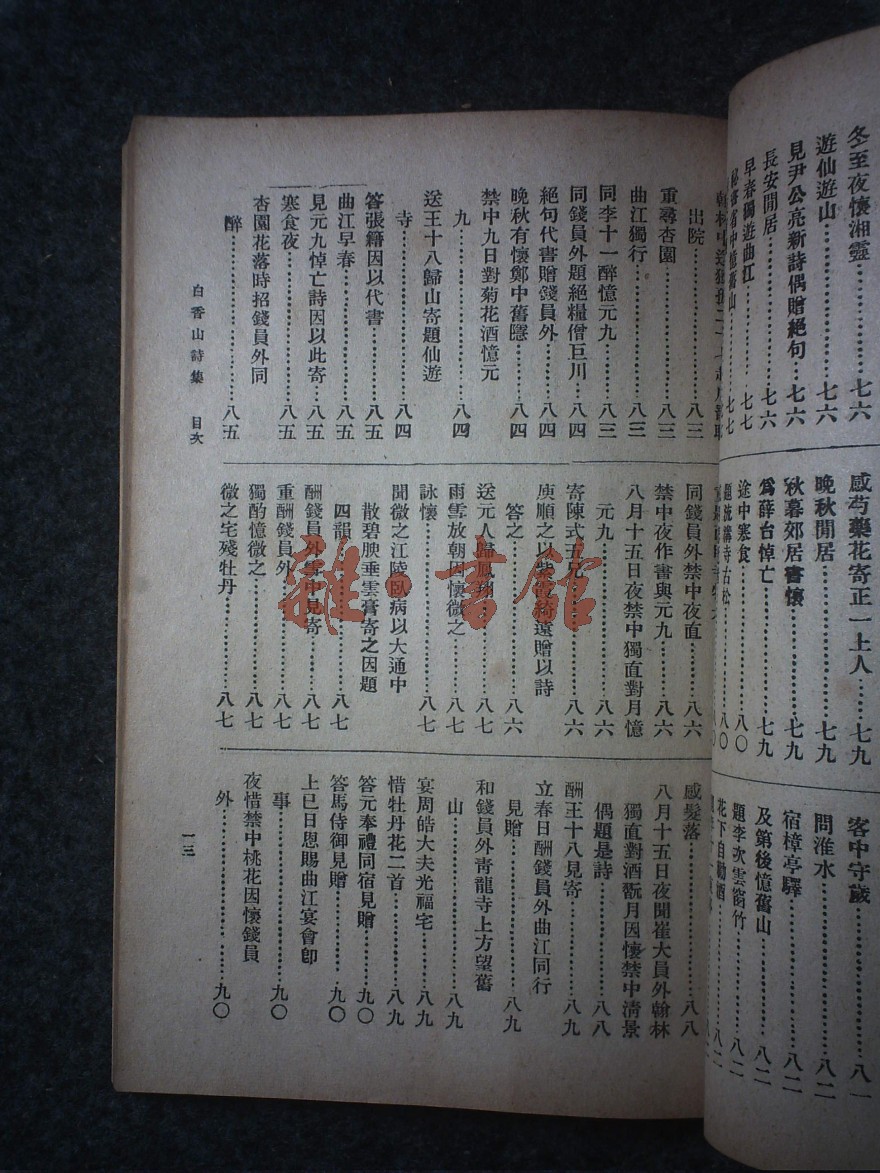 冬至夜懷湘靈………七六
遊仙遊山………七六
見尹公亮新詩偶贈絕句…七六
長安閒居………七六
早春獨遊曲江………七七
秘書省中憶舊山………七七
感芍藥花寄正一上人……七九
晚秋閒居………七九
秋暮郊居書懷………七九
爲薛台悼亡………七九
途中寒食………八〇
題流溝寺古松………八〇
客中守歲………八一
問淮水………八二
宿樟亭驛………八二
及第後憶舊山………八二
題李次雲窗竹………八二
花下自勸酒………八二
出院………八三
重尋杏園………八三
曲江獨行………八三
同李十一醉憶元九………八三
同錢員外題絕糧僧巨川…八四
絕句代書贈錢員外………八四
晚秋有懷鄭中舊隱………八四
禁中九日對菊花酒憶元
九………八四
送王十八歸山寄題仙遊
寺………八四
答張籍因以代書………八五
曲江早春………八五
見元九悼亡詩因以此寄…八五
寒食夜………八五
杏園花落時招錢員外同
醉………八五
同錢員外禁中夜直………八六
禁中夜作書與元九………八六
八月十五日夜禁中獨直對月憶
元九………八六
寄陳式五兄………八六
庾順之以紫霞綺遠贈以詩
答之………八六
送元八歸鳳翔………八七
雨雪放朝因懷微之………八七
詠懷………八七
聞微之江陵臥病以大通中
散碧腴垂雲膏寄之因題
四韻………八七
酬錢員外雪中見寄………八七
重酬錢員外………八七
獨酌憶微之………八七
微之宅殘牡丹………八七
感髮落………八八
八月十五日夜聞崔大員外翰林
獨直對酒翫月因懷禁中清景
偶題是詩………八八
酬王十八見寄………八九
立春日酬錢員外曲江同行
見贈………八九
和錢員外青龍寺上方望舊
山………八九
宴周皓大夫光福宅………八九
惜牡丹花二首………八九
答元奉禮同宿見贈………九〇
答馬侍御見贈………九〇
上巳日恩賜曲江宴會卽
事………九〇
夜惜禁中桃花因懷錢員
外………九〇
白香山詩集　目次
一三
雜·書館